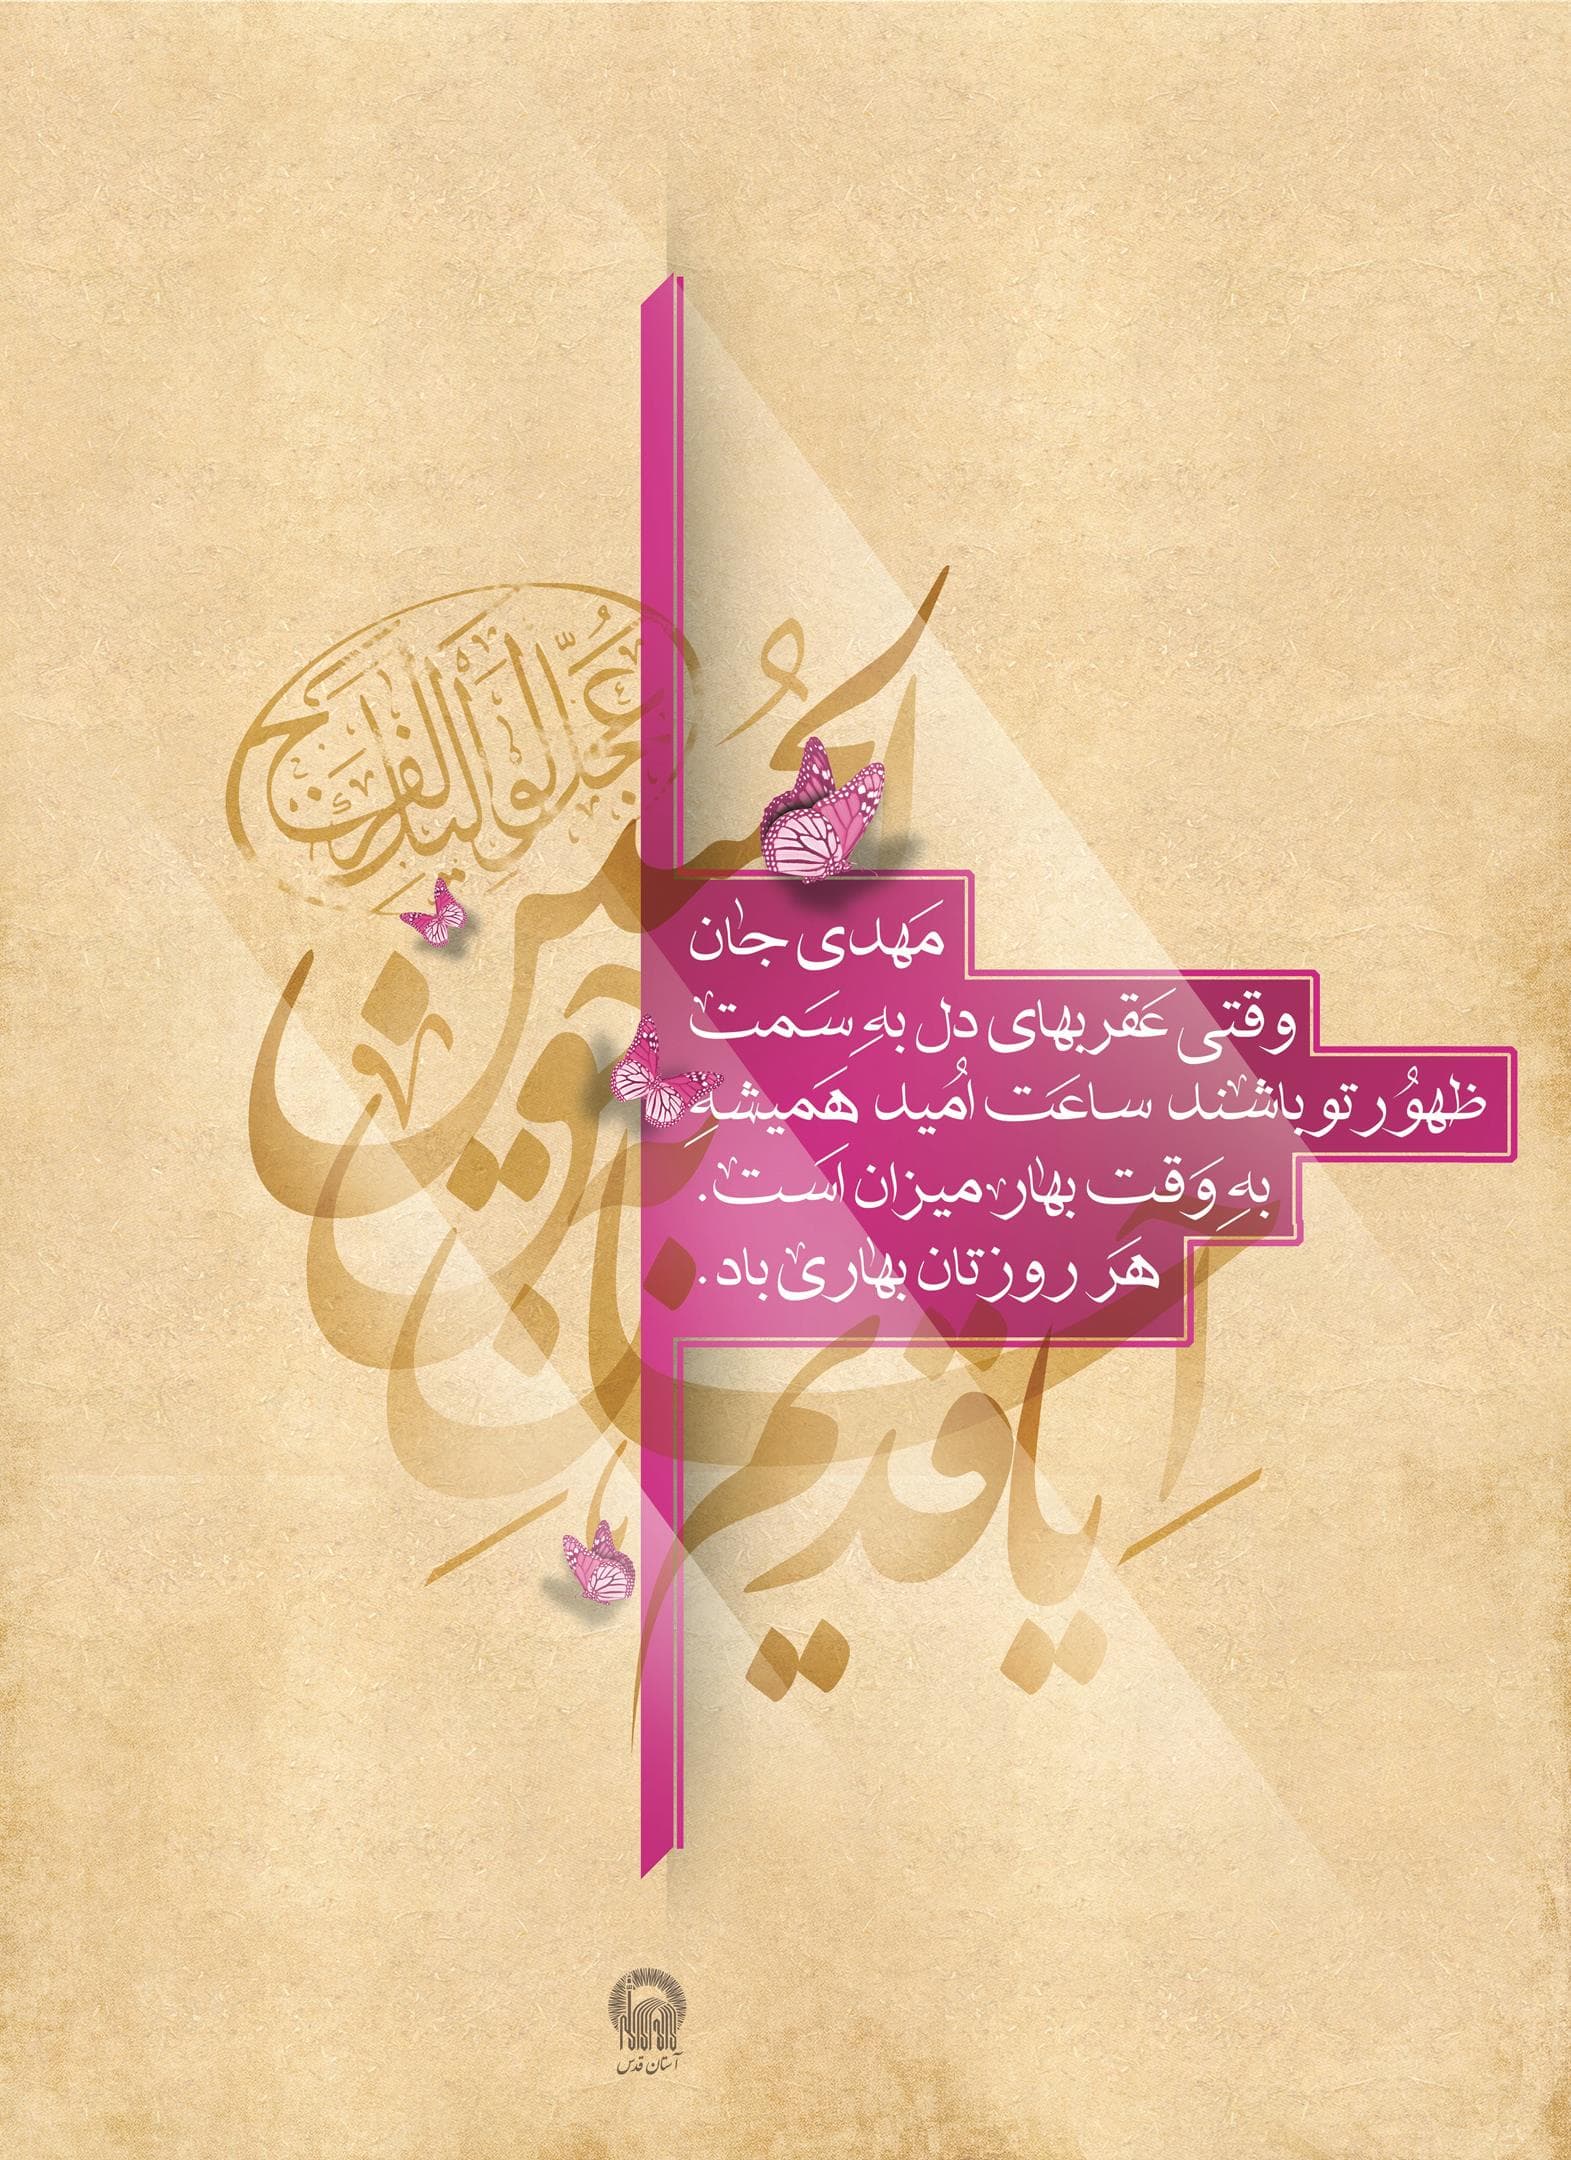 عجل لولیک الفرج
مَهدی جان
وقتی عَقربهای دل بهِ سَمت
ظهوُر تو باشند ساعَت اُمید هَمیشهِ
بهِ وَقت بهار میزان اَست.
هَر روزتان بهاری باد.
یا قدیم
آستان قدس